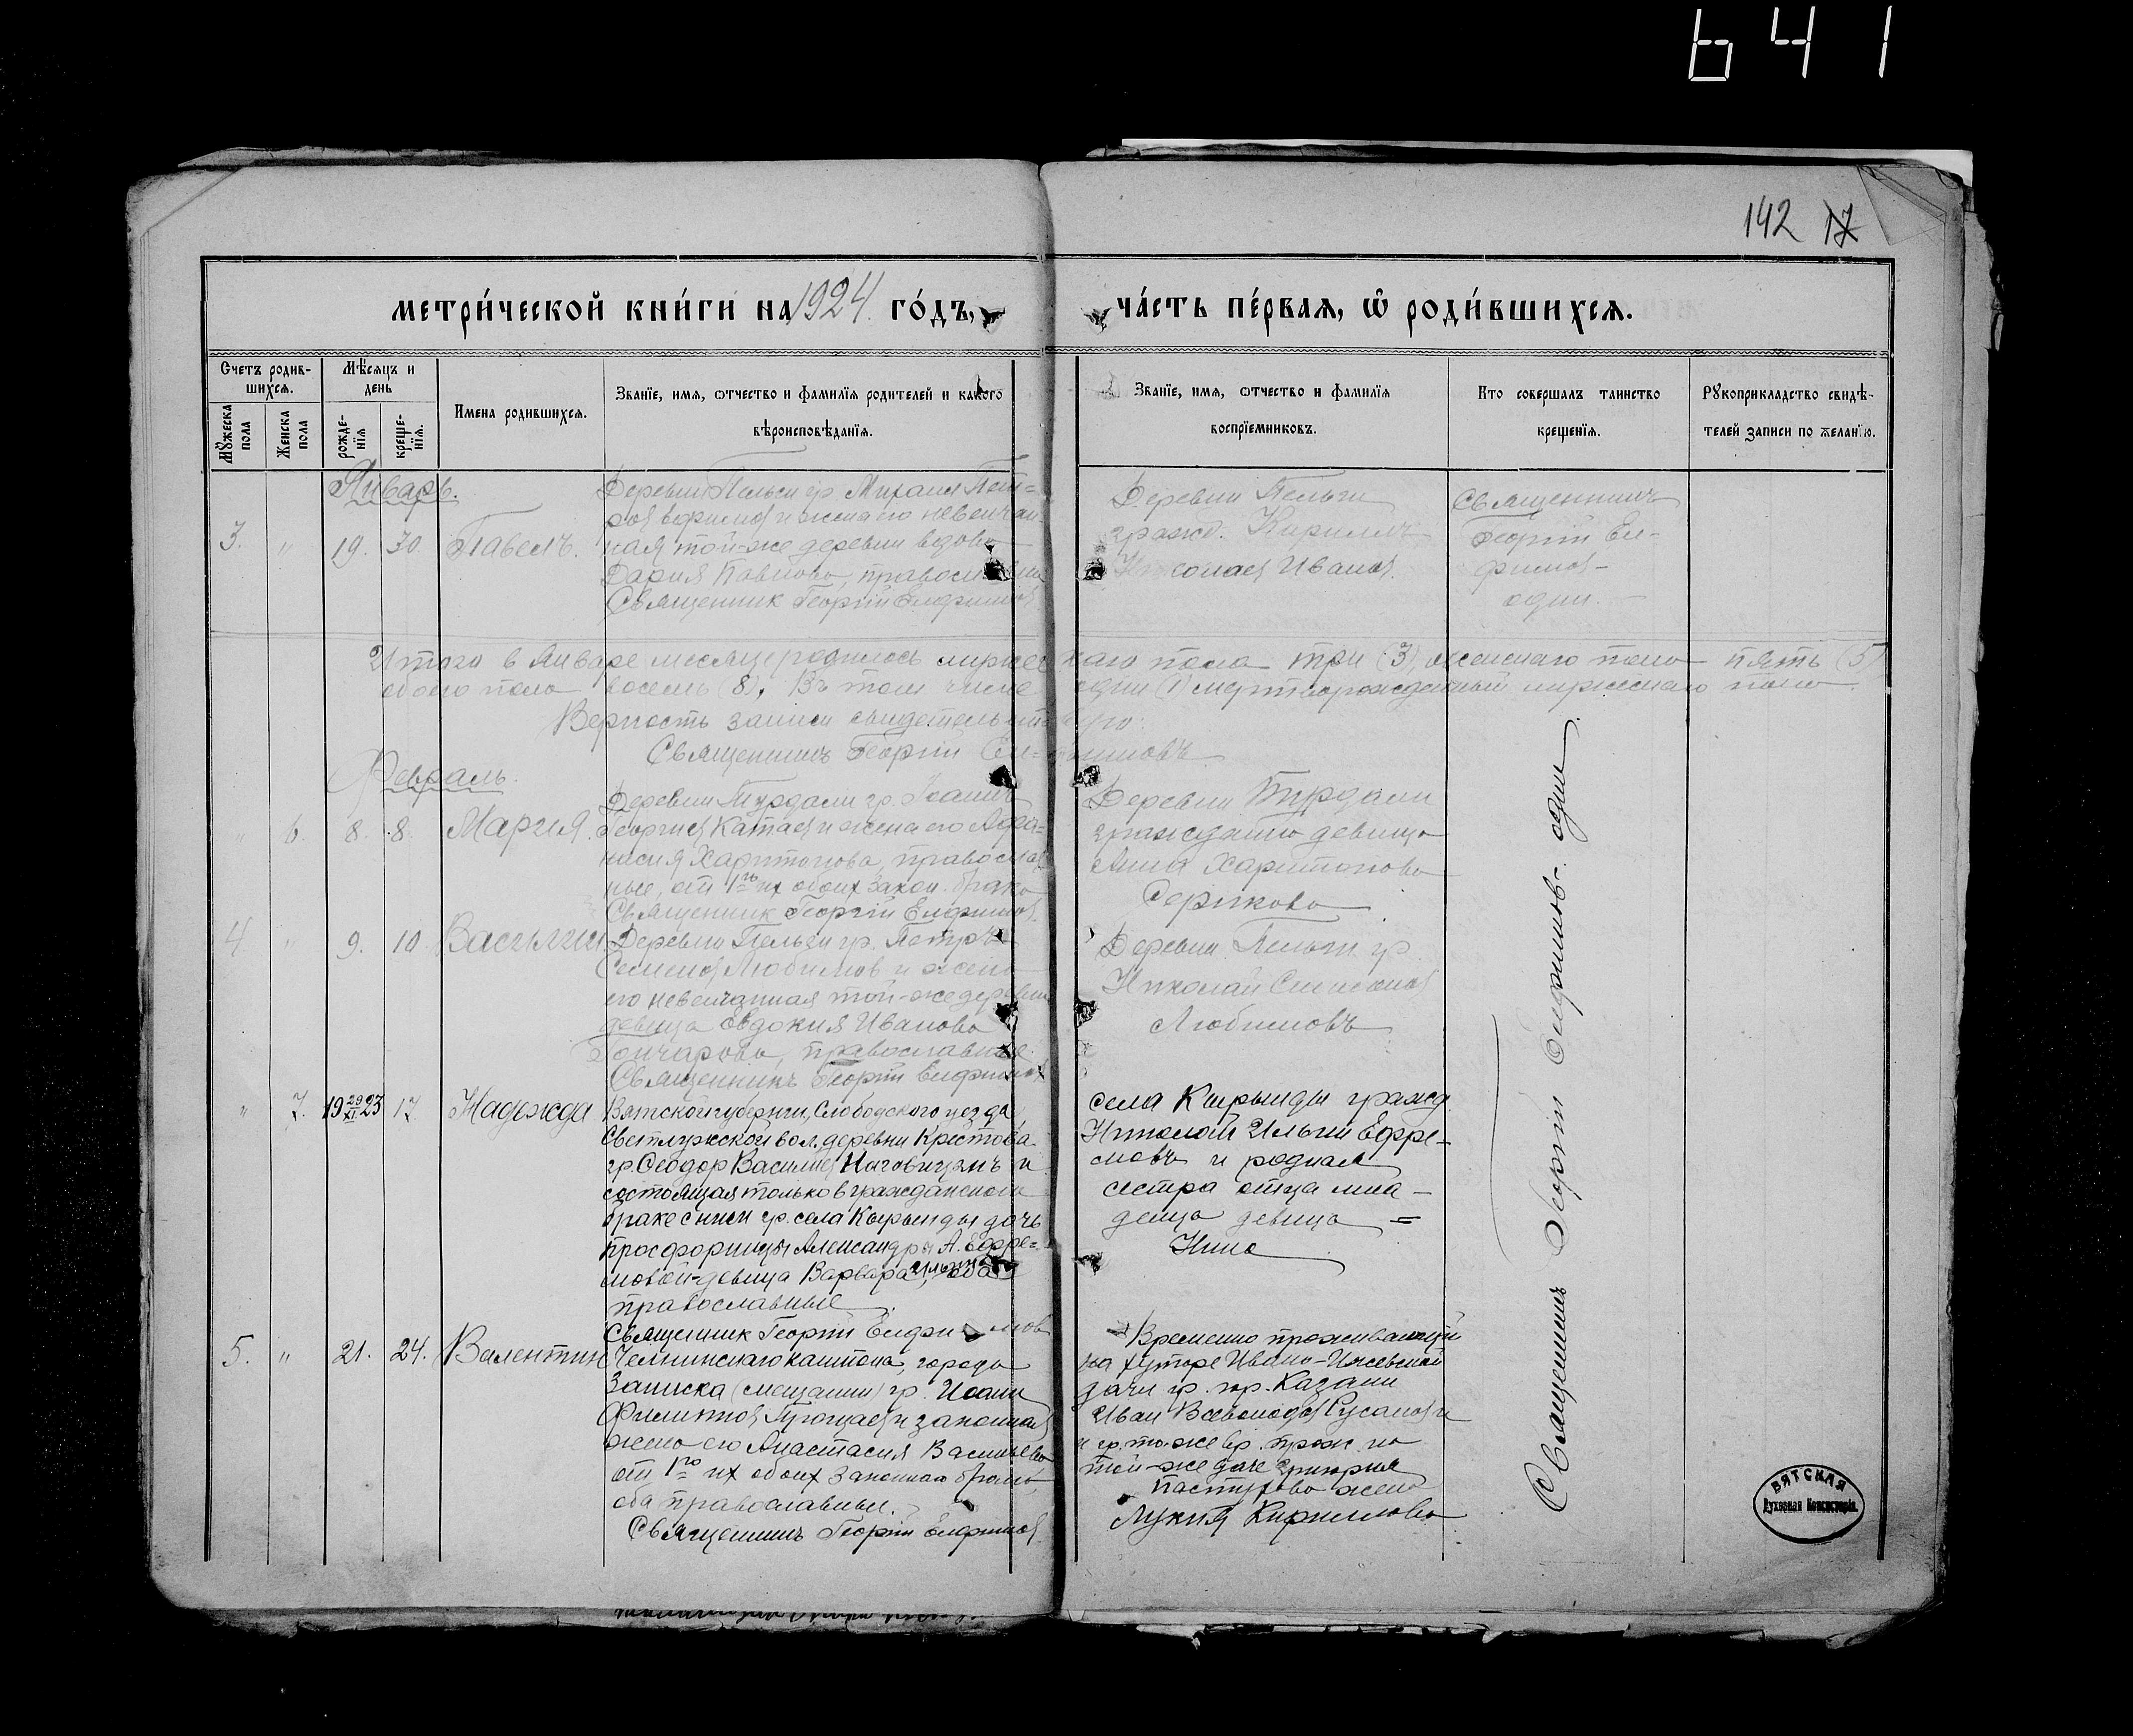 641
142 17
МЕТРИ́ЧЕСКОЙ КНИ́ГИ НА 1924 ГО́ДЪ,
ЧА́СТЬ ПЕ́РВАЯ, Ѡ҆ РОДИ́ВШИХСЯ.
Счетъ родив-
шихся.
Мѣсяцъ и
день
Мужеска пола
Женска пола
рожде-
нія
креще-
нія.
Имена родившихся.
Званіе, имя, отчество и фамилія родителей и какого
вѣроисповѣданія.
Званіе, имя, отчество и фамилія
воспріемниковъ.
Кто совершалъ таинство
крещенія.
Рукоприкладство свидѣ-
телей записи по желанію.
Январь.
3. " 19. 30. Павелъ.
Деревни Пельги гр. Михаил
и жена его невенчан-
ная той-же деревни вдова
Дария Павлова, православные
Священник Георгий Елфимов
Деревни Пельги
гражд. Кириллъ
Иванов.
Священникъ
Георгий Ел-
фимов-
один.-
Итого в Январе месяце родилось мужескаго пола три (3), женскаго пола пять (5)
обоего пола восемь (8). Въ том числе один (1) мертворожденный мужескаго пола.
Верность записи свидетельствую:
Священникъ Георгий Елфимовъ
Февраль.
" 6. 8. 8. Мария.
гр. Иоанн
Георгиев Катаев и жена его Афа-
насия Харитонова, православ-
ные, от 1го их обоих закон. брака
Священник Георгий Елфимов.
Деревни
гражданка девица
Анна Харитонова
Серикова
4 " 9. 10. Василий
Деревни Пельги гр. Петръ
Семенов Любимов и жена
его невенчанная той-же деревни
девица Евдокия Иванова
Гончарова, православные.
Священникъ Георгий Елфимов
Деревни Пельги гр.
Николай Симеонов
Любимовъ
" 7. 19 29/XI 23 17. Надежда
Вятской губернии, Слободского уезда,
Светлужской вол. деревни Крестова
гр. Феодор Васильев Наговицынъ и
состоящая только в гражданском
браке с ним гр. села Кырынды дочь
просфорницы Александры А. Ефре-
мовой-девица Варвара Ильина, оба
православные.
Священник Георгий Елфимов
села Кырынды гражд.
Николай Ильин Ефре-
мовъ и родная
сестра отца мла-
денца девица =
Нина
5. " 21. 24. Валентин
кантона, города
(мещанин) гр. Иоанн
Филиппов и законная
жена его Анастасия Васильева
от 1го их обоих законнаго брака,
оба православные.
Священникъ Георгий Елфимов.
Временно проживающий
на хуторе Ивано-Ижевской
дачи гр. гор. Казани
Иван Всеволодов Русанов и
и гр. то-же вр. прож. на
той-же даче Григория
Пастухова жена
Лукия Кириллова
Священникъ Георгий Елфимовъ - один
ВЯТСКАЯ
Духовная Консисторія.